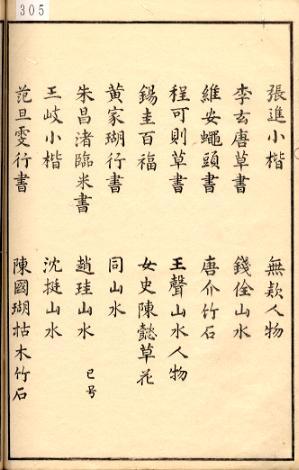 305
張進小楷　無款人物
李玄唐草書　錢佺山水
維安蠅頭書　唐介竹石
程可則草書　王聲山水人物
錫圭百福　女史陳懿草花
黃家瑚行書　同山水
朱昌渚臨米書　趙珪山水　已号
王岐小楷　沈挺山水
范旦雯行書　陳國瑚枯木竹石